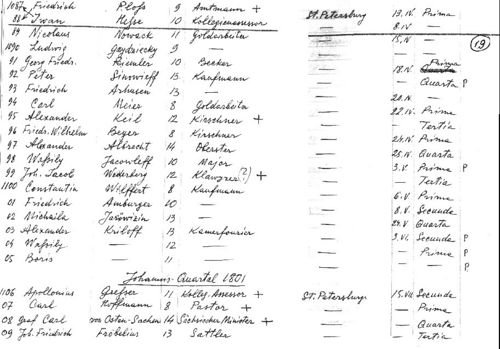 1087a Friedrich Plofs 9 Amtmann + St. Petersburg 13.IV. Prima
88 Iwan Hesse 10 Kollegienassessor — 8.IV. —
89 Nicolaus Nowack 11 Goldarbeiter — 15.IV. —
1090 Ludwig 9 — — — 19
91 Georg Friedr. Biemler 10 Becker — 18.IV. Prima
92 Peter Sinowieff 13 Kaufmann — — Quarta P
93 Friedrich Arhusen 13 — — 20.IV. —
94 Carl Meier 8 Goldarbeiter — 22.IV. Prima
95 Alexander Keil 12 Kirschner + — — Tertia
96 Friedr. Wilhelm Beyer 8 Kirschner — 24.IV. Prima
97 Alexander Albrecht 14 Oberster — 25.IV. Quarta
98 Wassily Jacowleff 10 Major — 3.V. Prima P
99 Joh. Jacob Wederberg 12 (?) + — — Tertia
1100 Constantin Wilffert 8 Kaufmann — 6.V. Prima
01 Friedrich Amburger 10 — — 8.V. Secunda
02 Michaila 13 — — 24.V. Quarta
03 Alexander Kriloff 13 Kamerfourier — 3.VI. Secunda P
04 Wassily — 12 — — Prima P
05 Boris — 11 — — — P
Johannis-Quartal 1801
1106 Apollonius Graefser 11 Kolleg. Assessor + St. Petersburg 15.VII. Secunda
07 Carl Hoffmann 8 Pastor + — — Prima
08 Graf Carl von Osten-Sacken 14 Sächsischer Minister + — — Quarta
09 Joh. Friedrich Fröbelius 13 Sattler — — Tertia